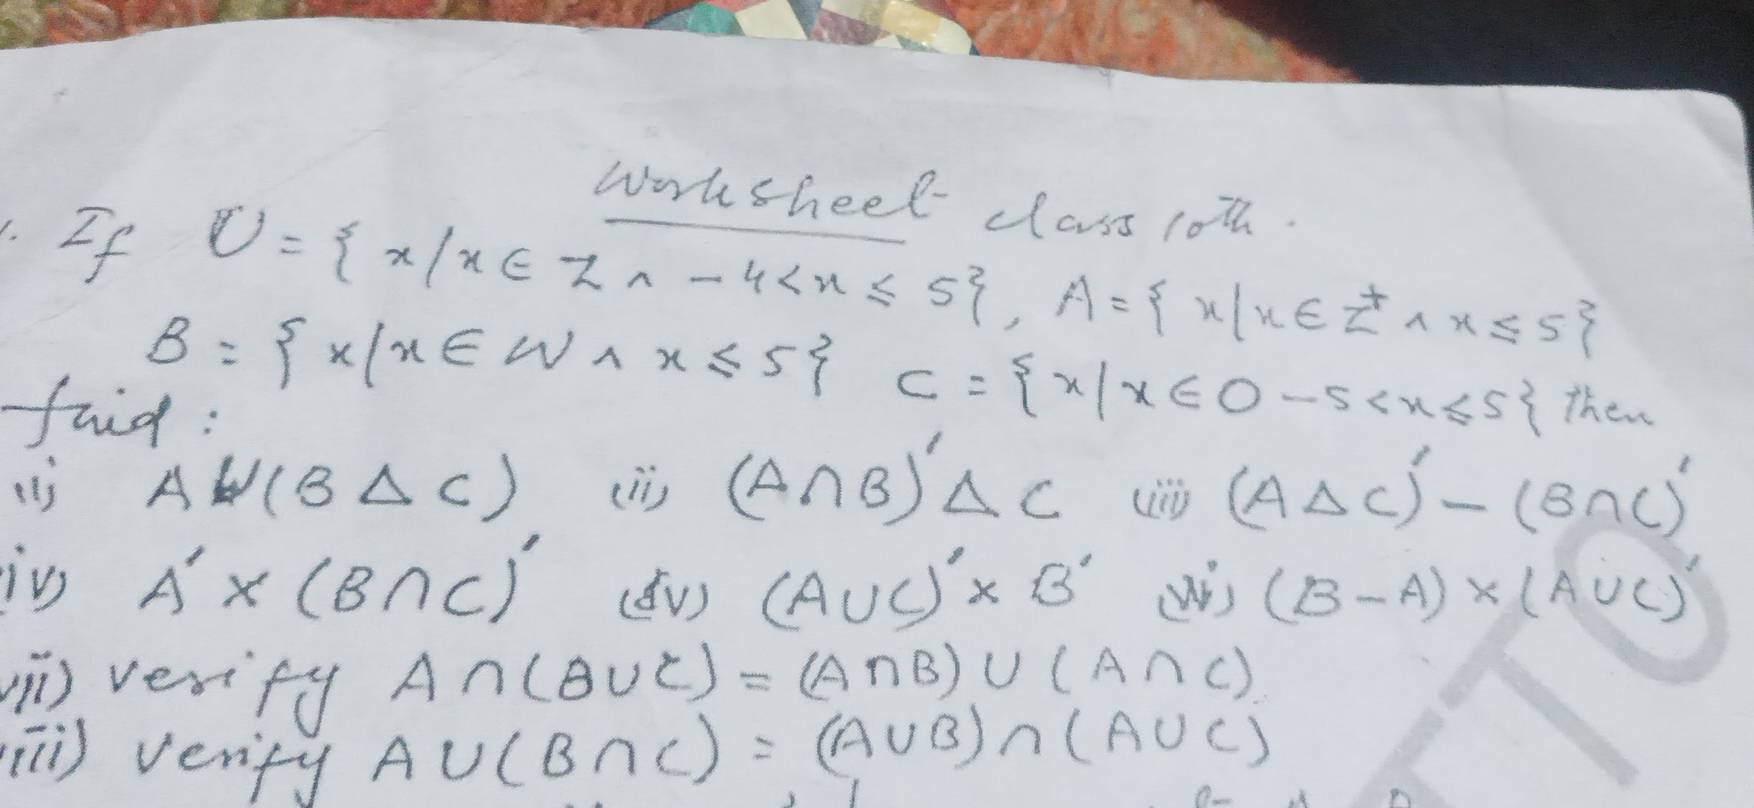 Worksheet class 10th.
1. If U = { x/x ∈ Z ∧ -4<x ≤ 5}, A = { x/x ∈ Z⁺ ∧ x ≤ 5}
B = { x/x ∈ W ∧ x ≤ 5} C = { x/x ∈ O -5 <x ≤ 5} then
faid :
(i) A U (B Δ C) (ii) (A ∩ B)' Δ C (iii) (A Δ C)' - (B ∩ C)'
iv) A' × (B ∩ C)' (v) (A ∪ C)' × B' (vi) (B - A) × (A ∪ C)'
vii) verify A ∩ (B ∪ C) = (A ∩ B) ∪ (A ∩ C).
viii) Verify A ∪ (B ∩ C) = (A ∪ B) ∩ (A ∪ C)
TTO